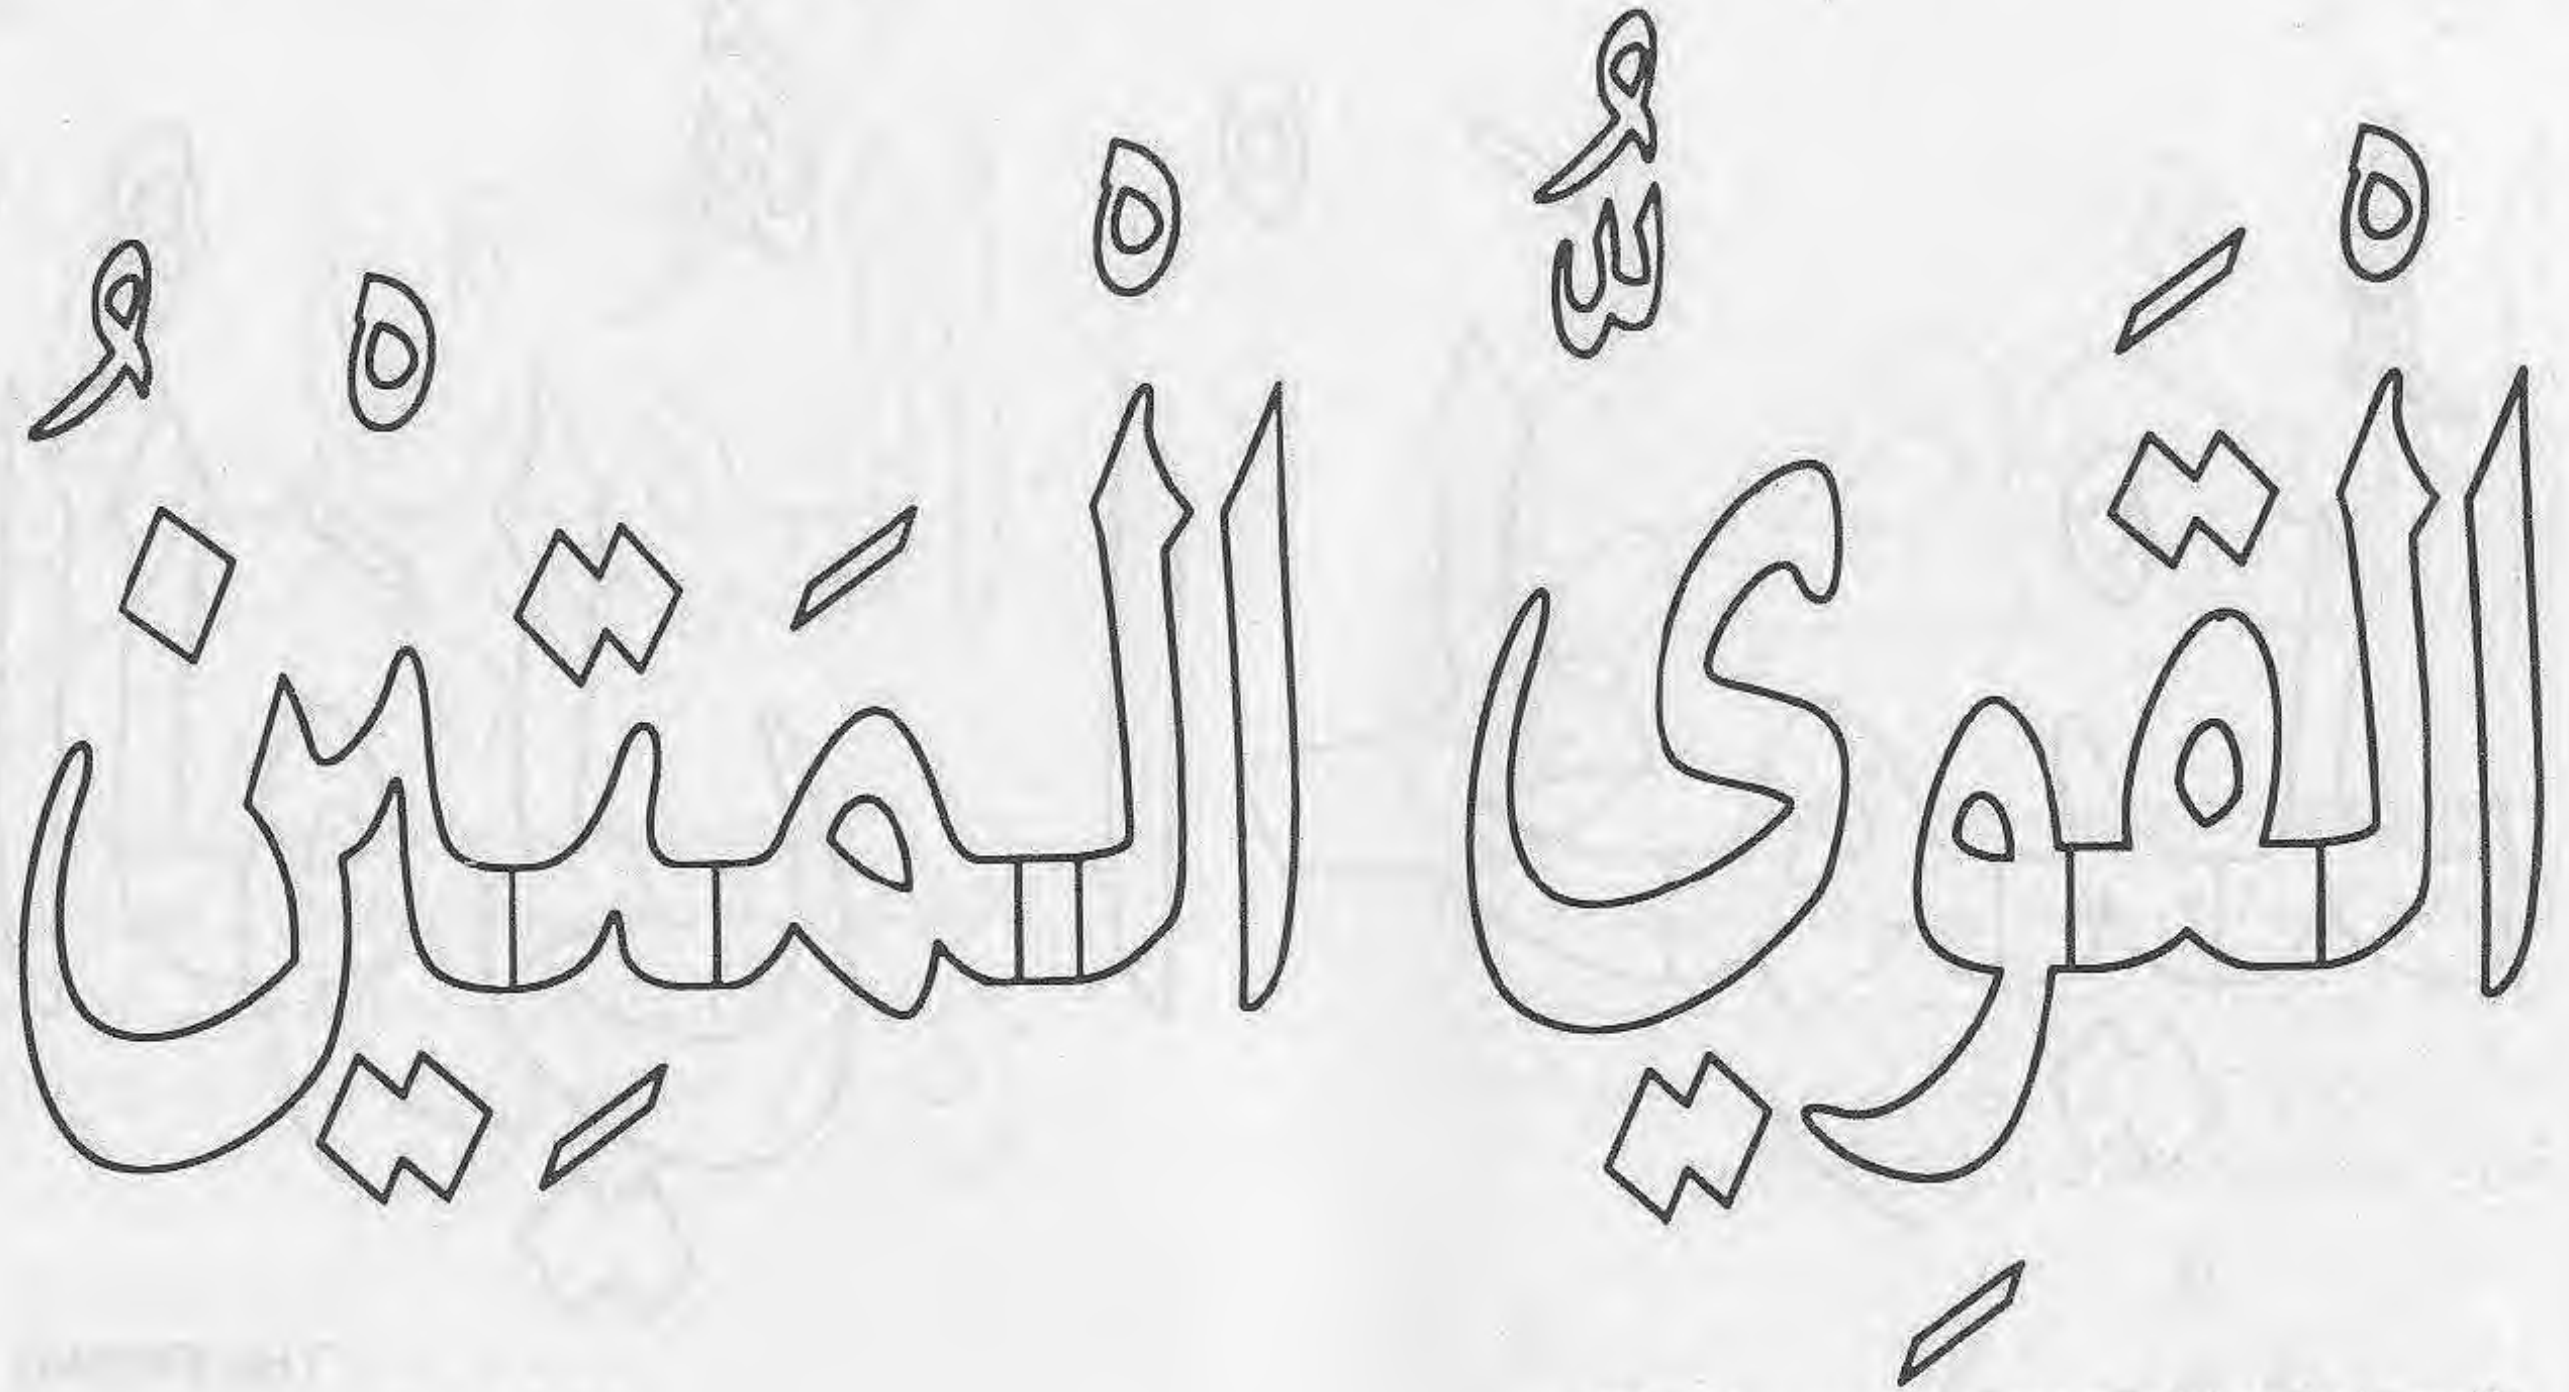 الْقَوِيُّ الْمَتِيْنُ